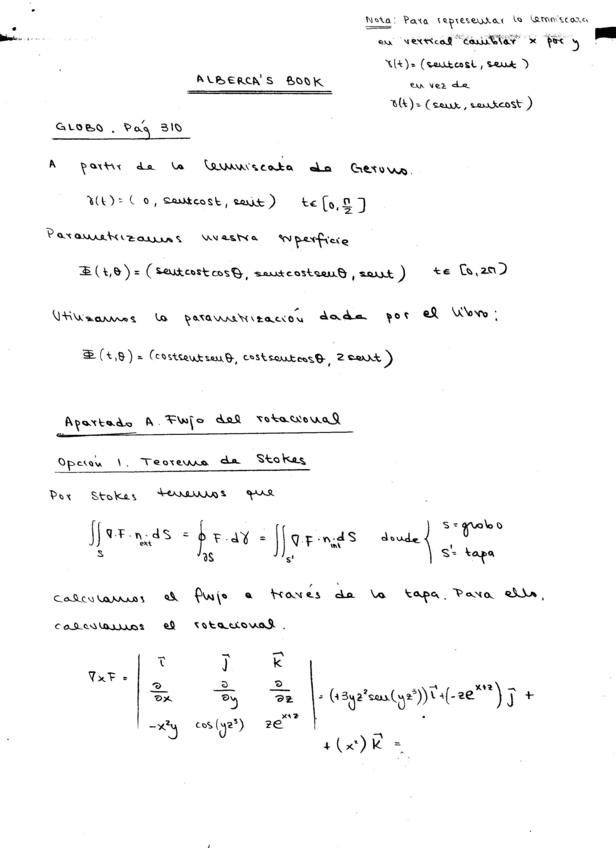 Nota: Para representar la lemniscata
en vertical cambiar x por y
γ(t)=(sentcost, sent)
en vez de
γ(t)=(sent, sentcost)
ALBERCA'S BOOK
GLOBO. Pág 310
A partir de la lemniscata de Gerono.
γ(t)=(0, sentcost, sent) t∈[0, π/2]
Parametrizamos nuestra superficie
Φ(t,θ)=(sentcostcosθ, sentcostsenθ, sent) t∈[0,2π)
Utilizamos la parametrización dada por el libro:
Φ(t,θ)=(costsentsenθ, costsentcosθ, 2sent)
Apartado A. Flujo del rotacional
Opción 1. Teorema de Stokes
Por Stokes tenemos que
∬_S ∇·F·n_ext dS = ∮_∂S F·dγ = ∬_S' ∇·F·n_int dS donde { S=globo
S'=tapa
calculamos el flujo a través de la tapa. Para ello,
calculamos el rotacional.
∇xF = | i⃗ j⃗ k⃗ |
| ∂/∂x ∂/∂y ∂/∂z | = (+3yz²sen(yz³))i⃗+(-ze^(x+z))j⃗ +
| -x²y cos(yz³) ze^(x+z) |
+(x²)k⃗ =